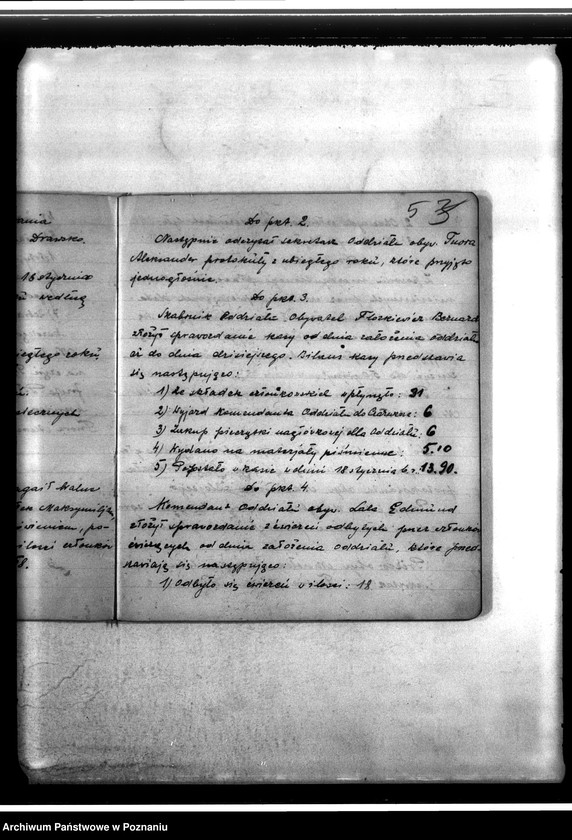 ania
Drawsko.
18 stycznia
według
iegłego roku
Walne
Maksymilja
po-
członków
5 3
Do pkt. 2.
Następnie odczytał sekretarz Oddziału obyw. Tuora
Aleksander protokuły z ubiegłego roku, które przyjęto
jednogłośnie.
Do pkt. 3.
Skarbnik Oddziału Obywatel Florkiewicz Bernard
złożył sprawozdanie kasy od dnia założenia oddziału
aż do dnia dzisiejszego. Bilans kasy przedstawia
się następująco:
1) Ze składek członkowskich wpłynęło: 31
2) Wyjazd Komendanta Oddziału do Czarnkowa: 6
3) Zakup pieczątki nagłówkowej dla Oddziału: 6
4) Wydano na materjały piśmienne: 5.10
5) Pozostało w kasie w dniu 18 stycznia b.r. 13.90.
Do pkt. 4.
Komendant Oddziału obyw. Lala Edmund
złożył sprawozdanie z ćwiczeń odbytych przez członków
ćwiczących od dnia założenia Oddziału, które przed-
stawiają się następująco:
1) Odbyło się ćwiczeń w ilości: 18
Archiwum Państwowe w Poznaniu